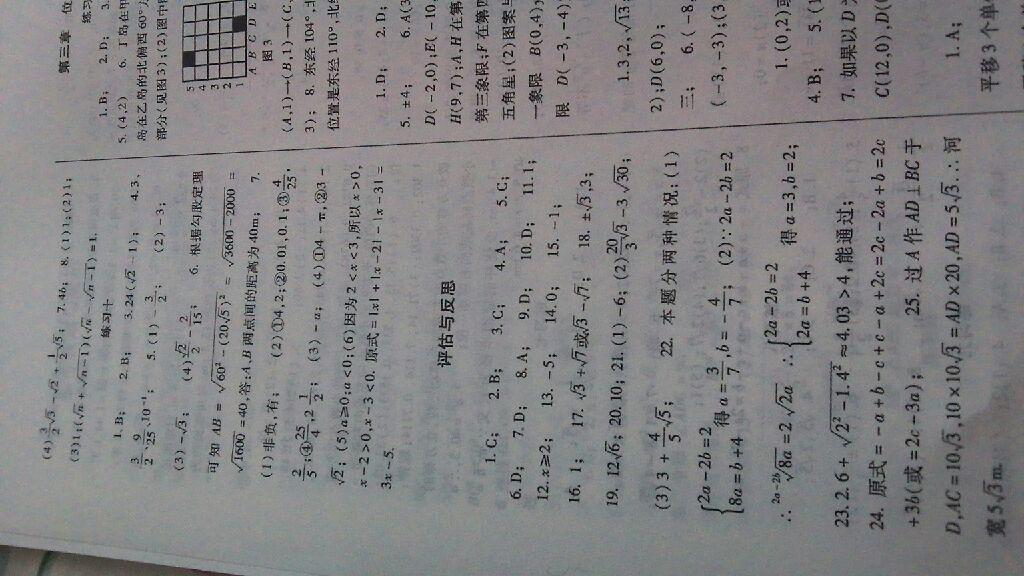 (4) 3/2√3-√2+1/2√5; 7.4b; 8.(1)1;(2)1;
(3)1;(√n+√n-1)(√n-√n-1)=1.
练习十
1.B; 2.B; 3.24(√2-1); 4.3,
3/2,9/25,10⁻¹; 5.(1)-3/2; (2)-3;
(3)-√3; (4)√2/2-2/15; 6. 根据勾股定理
可知AB=√60²-(20√5)²=√3600-2000=
√1600=40,答:A,B两点间的距离为40m; 7.
(1)非负,有; (2)①4,2;②0.01,0.1;③4/25,
2/5;④25/4,2 1/2; (3)-a; (4)①4-π,②3-
√2; (5)a≥0;a<0;(6)因为2<x<3,所以x>0,
x-2>0,x-3<0. 原式=|x|+|x-2|-|x-3|=
3x-5.
评估与反思
1.C; 2.B; 3.C; 4.A; 5.C;
6.D; 7.D; 8.A; 9.D; 10.D; 11.1;
12.x≥2; 13.-5; 14.0; 15.-1;
16.1; 17.√3+√7或√3-√7; 18.±√3,3;
19.12√6; 20.10; 21.(1)-6; (2)20/3√3-3√30;
(3)3+4/5√5; 22. 本题分两种情况:(1)
{2a-2b=2
8a=b+4 得a=3/7,b=-4/7; (2)∵2a-2b=2
∴ ²ᵃ⁻²ᵇ√8a=2,√2a ∴{2a-2b=2
2a=b+4 得a=3,b=2;
23.2.6+√2²-1.4²≈4.03>4,能通过;
24. 原式=-a+b-c+c-a+2c=2c-2a+b=2c
+3b(或=2c-3a); 25. 过A作AD⊥BC于
D,AC=10√3,10×10√3=AD×20,AD=5√3∴河
宽5√3m.
第三章 位
练习
1.B; 2.D; 3.
5.(4,2) 6. 丁岛在甲
岛在乙岛的北偏西60°方
部分(见图3);(2)图书
5
4
3
2
1
A B C D E
图3
(A,1)→(B,1)→(C,
3); 8. 东经104°,北
位置是东经110°,北纬
1.D; 2.D;
5.±4; 6.A(3
D(-2,0);E(-10,
H(9,7);A,H在第
第三象限;F在第四
五角星;(2)图案与
一象限 B(0,4),
限 D(-3,-4)
1.3,2,√13;
2);D(6,0);
三; 6.(-8,
(-3,-3);(3
1.(0,2)或
4.B; 5.(1
7. 如果以D为
C(12,0),D(0
1.A;
平移3个单位